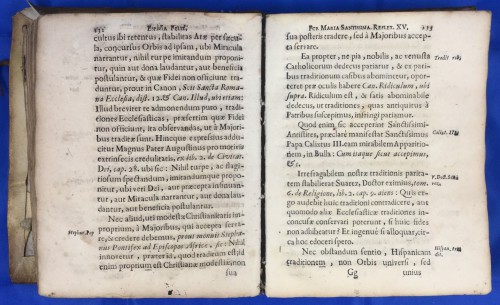 Bivira Petri
cultus ibi retentus, stabilitas Aræ per sæcu-
la, concursus Orbis ad ipsam, ubi Miracula
narrantur, nihil turpe imitandum proponi-
tur, quin aut dona laudantur, aut beneficia
postulantur, & quæ Fidei non officiunt tra-
duntur, prout in Canon, Scit Sancta Roma-
na Ecclesia, dist.
Illud breviter te admonendum puto, tradi-
tiones Ecclesiasticas, præsertim quæ Fidei
non officiunt, ita observandas, ut à Majori-
bus traditæ sunt. Hincque expressius addo-
citur Magnus Pater Augustinus pro motivis
extrinsecis credulitatis, ex lib. 2. de Civitat.
Dei, cap. 28. ubi sic: Nihil turpe, ac flagi-
tiosum spectandum, imitandumque propo-
nitur, ubi veri Dei, aut præcepta insinuan-
tur, aut miracula narrantur, aut dona lau-
dantur, aut beneficia postulantur.
Nec aliud, uti modestæ Christianitatis im-
proprium, à Majoribus, qui accepta serva-
re, & credere debemus, prout monuit Stepha-
nus Pontifex ad Episcopos Africæ, sic: Nihil
innovetur, præter id, quod traditum est; id
enim proprium est Christianæ modestiæ, non
sua
Per Maria Santissima. Reflex. XV. 233
sua posteris tradere, sed à Majoribus accep-
ta servare.
Ea propter, net pia, nobilis, ac venusta
Catholicorum dedecus patiatur, & ex pari-
bus traditionum casibus abominetur, opor-
teret præ oculis habere Can. Ridiculum,
supra. Ridiculum est, & satis abominabile
dedecus, ut traditiones, quas antiquitus à
Patribus suscepimus, infringi patiamur.
Quod enim sic acceperint Sanctissimi
Antistites, præclarè manifestat Sanctissimus
Papa Calixtus III. eam mirabilem Apparitio-
nem, in Bulla: Cum itaque sicut accepimus,
&c.
Irrefragabilem nostræ traditionis parita-
tem stabiliterae Suarez, Doctor eximius, tom.
6. de Religione, lib. 2. cap. 9. aiens: Quis er-
go audebit huic traditioni contradicere, aut
quomodo aliæ Ecclesiasticæ traditiones in-
concussæ conservari poterunt, si huic fides
non adhibeatur? Et ingenuè si alloquar, cit-
ca hoc edoceri spero.
Nec obstandum sentio, Hispanicam
traditionem, non Orbis universi, sed
Gg unius